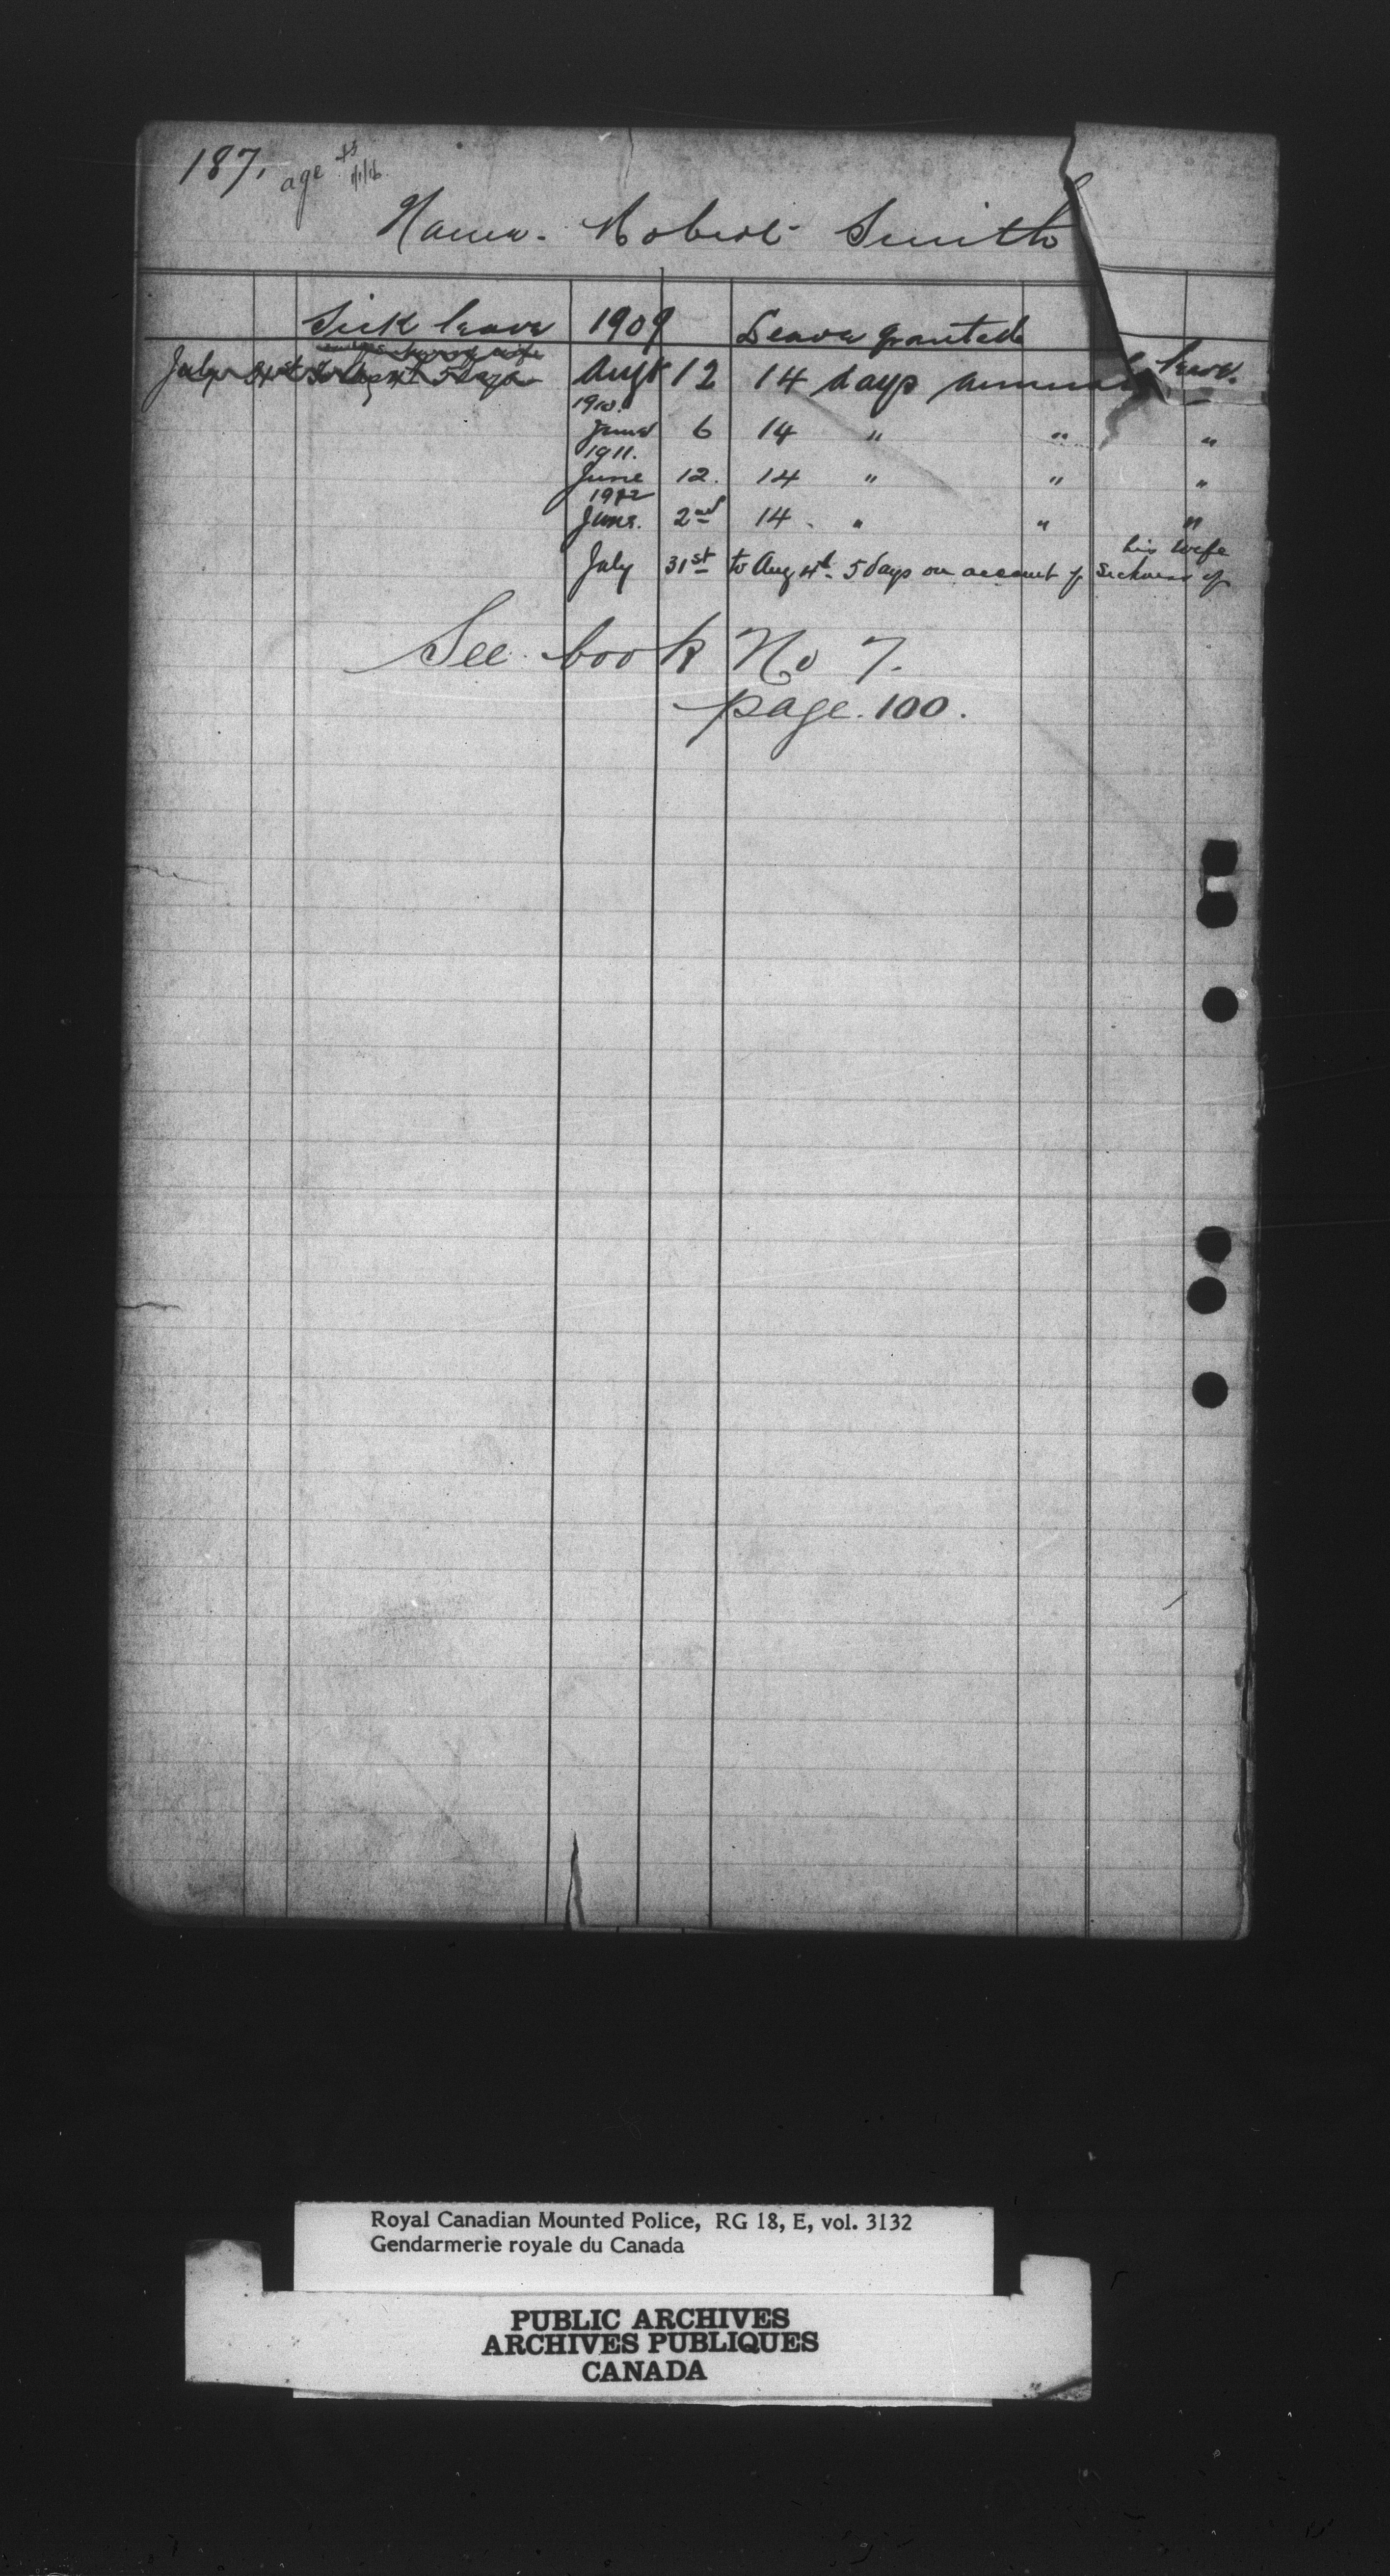 187. age 1/1/16
Name. Robert Smith
Sick leave 1909 Leave granted
July 31st to Aug 4t 5 days Augt 12 14 days annual leave.
1910.
June 6 14 " " "
1911.
June 12. 14 " " "
1912
June. 2nd 14 . " " "
his wife
July 31st to Aug 4th 5 days on account of sickness of
See book No 7.
page. 100.
Royal Canadian Mounted Police, RG 18, E, vol. 3132
Gendarmerie royale du Canada
PUBLIC ARCHIVES
ARCHIVES PUBLIQUES
CANADA